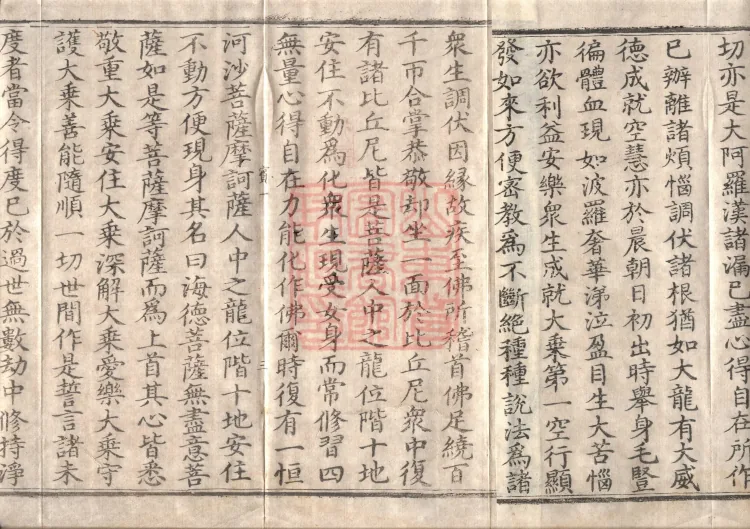 切亦是大阿羅漢諸漏已盡心得自在所作
已辦離諸煩惱調伏諸根猶如大龍有大威
德成就空慧亦於晨朝日初出時舉身毛豎
徧體血現如波羅奢華涕泣盈目生大苦惱
亦欲利益安樂衆生成就大乗第一空行顯
發如來方便密教爲不斷絕種種說法爲諸
衆生調伏因緣故疾至佛所稽首佛足繞百
千帀合掌恭敬却坐一面於比丘尼衆中復
有諸比丘尼皆是菩薩人中之龍位階十地
安住不動爲化衆生現受女身而常修習四
無量心得自在力能化作佛爾時復有一恒
三
河沙菩薩摩訶薩人中之龍位階十地安住
不動方便現身其名曰海德菩薩無盡意菩
薩如是等菩薩摩訶薩而爲上首其心皆悉
敬重大乗安住大乗深解大乗愛樂大乗守
護大乗善能隨順一切世間作是誓言諸未
度者當令得度已於過世無數劫中修持淨